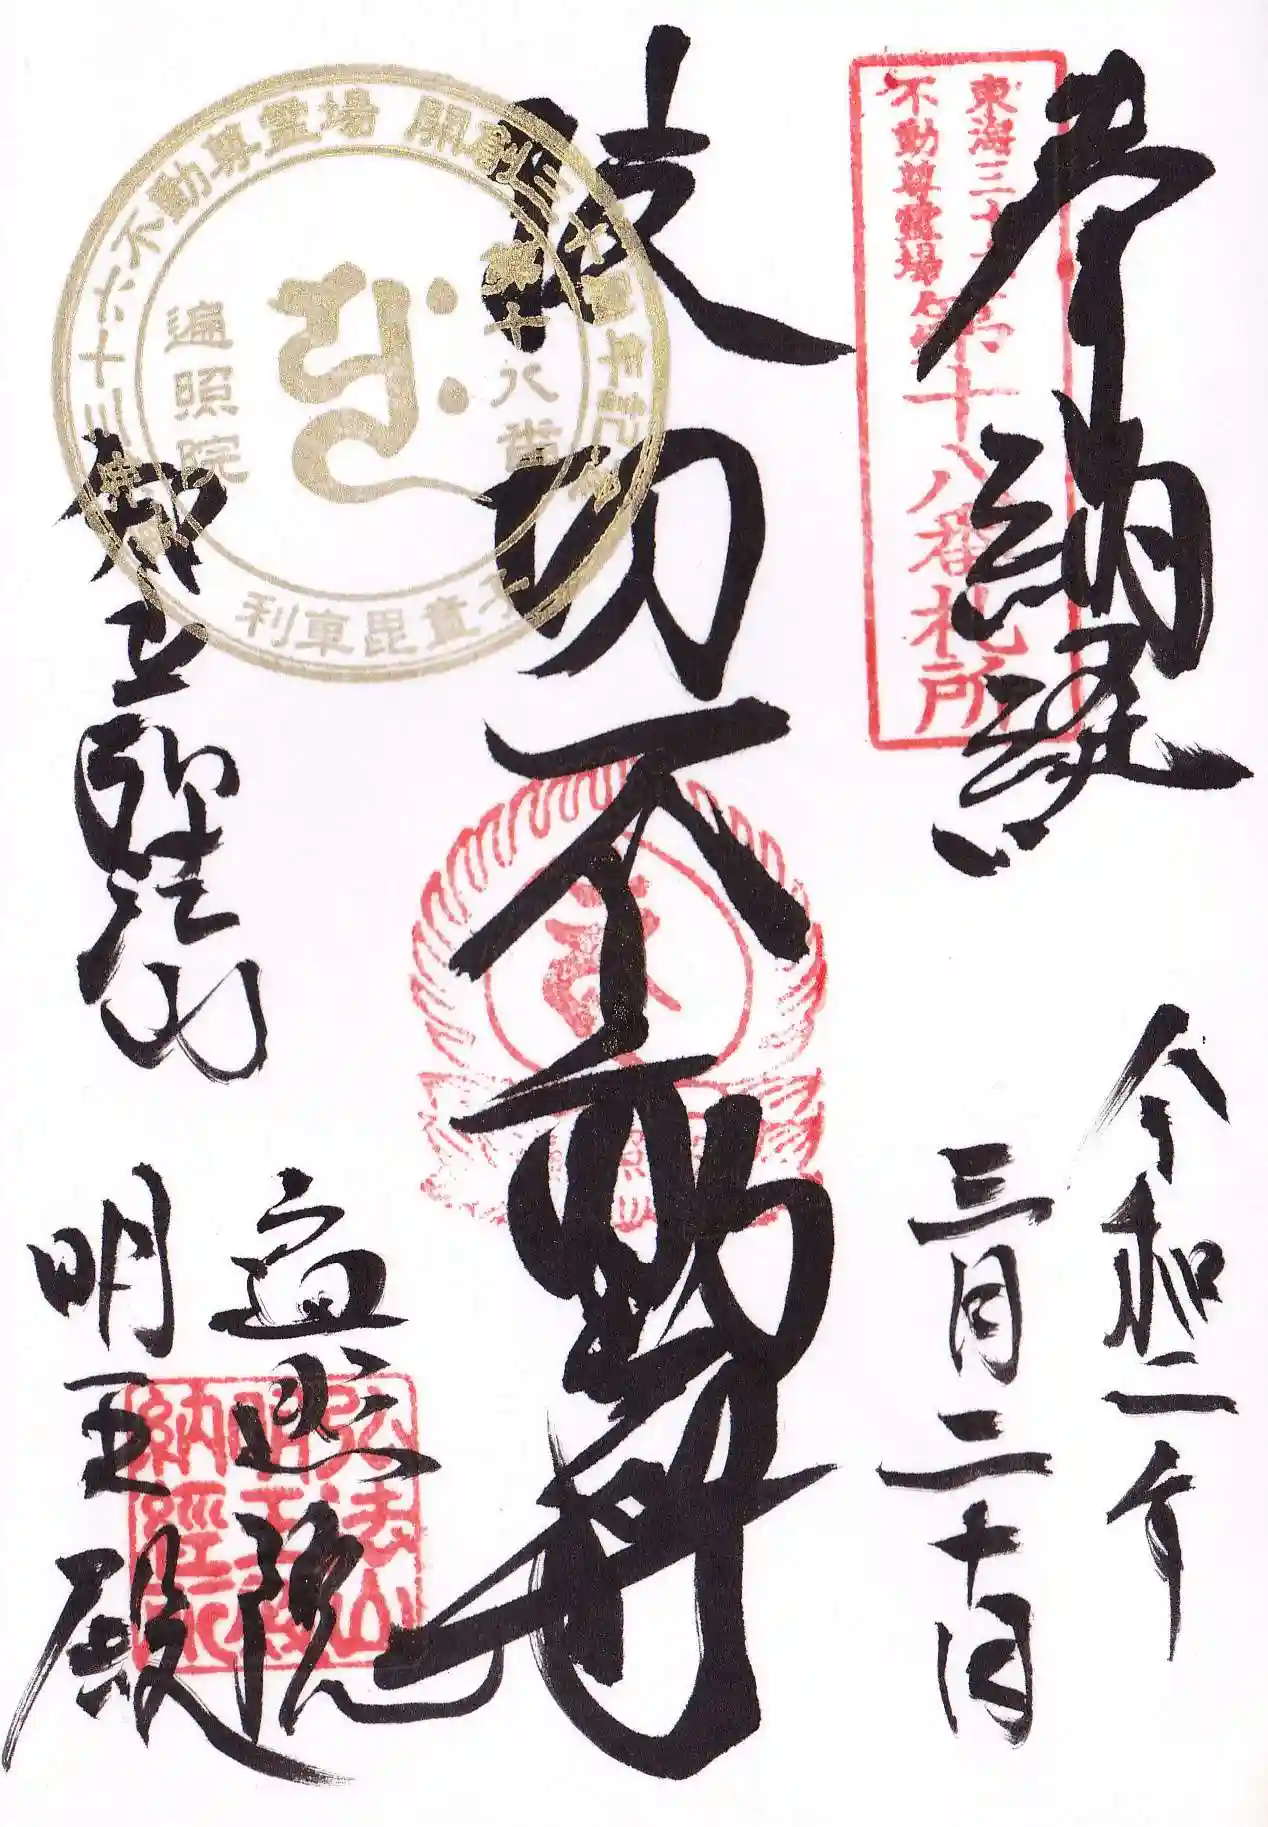 奉納
令和二年
三月二十日
東海三十六
不動尊霊場
第十八番札所
不動尊
三十六不動尊霊場 開創三十周年記念
第十八番
遍照院
利車毘童子
弘法山
遍照院
明王殿
弘法山
明王殿
納經印